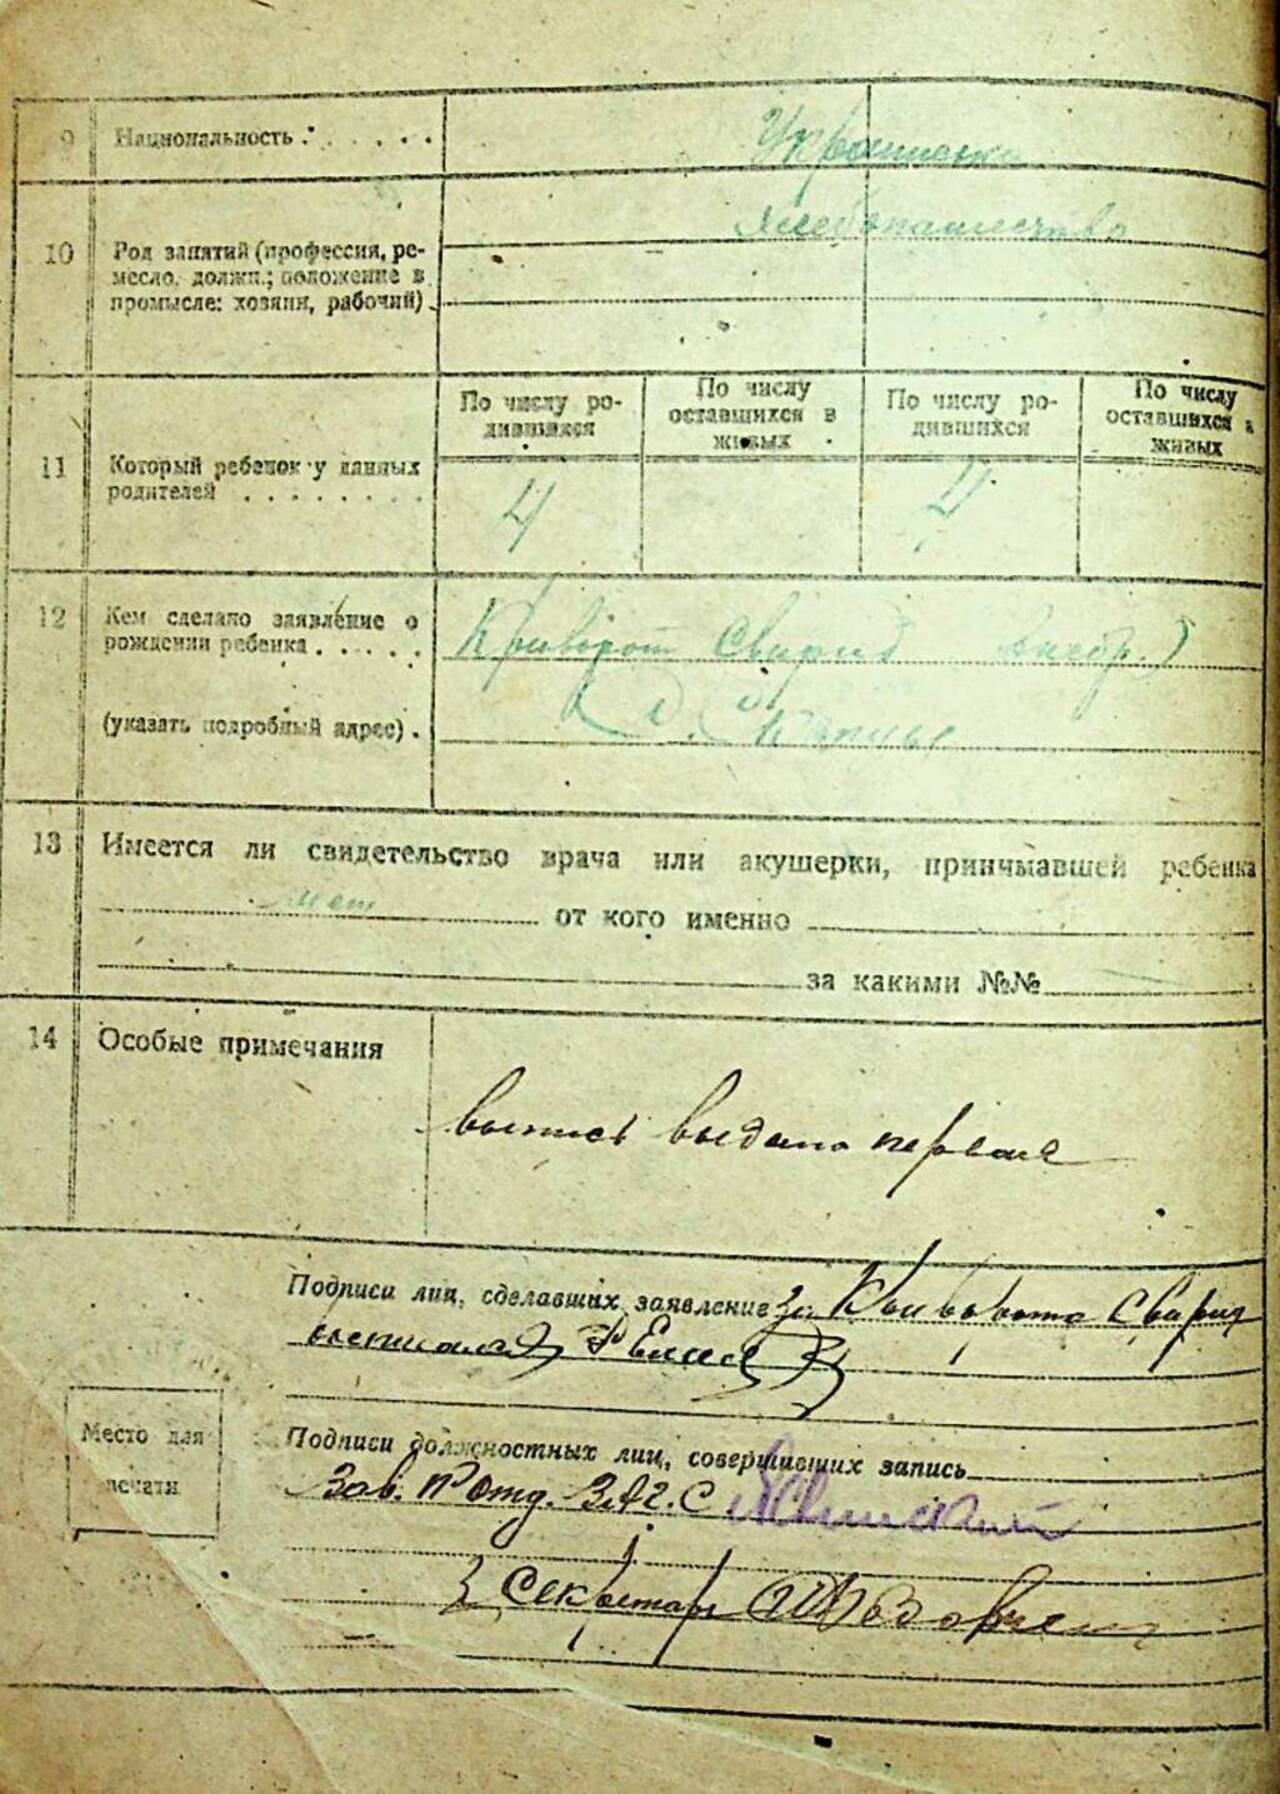 9 Национальность . . . . . .
Украинск
10 Род занятий (профессия, ре-
месло, должн.; положение в
промысле: хозяин, рабочий)
Хлебопашество
По числу ро-
дившихся
По числу
оставшихся в
живых
По числу ро-
дившихся
По числу
оставшихся в
живых
11 Который ребенок у данных
родителей . . . . . . . .
4 4
12 Кем сделано заявление о
рождении ребенка . . . . .
Криворот Свирид
(указать подробный адрес) .
13 Имеется ли свидетельство врача или акушерки, принимавшей ребенка
нет от кого именно
за какими №№
14 Особые примечания
выпись выдана первая
Подписи лиц, сделавших заявление за Криворота Свирид
Место для
печати
Подписи должностных лиц, совершивших запись
Зав. П/Отд. ЗАГ.С
Секретарь